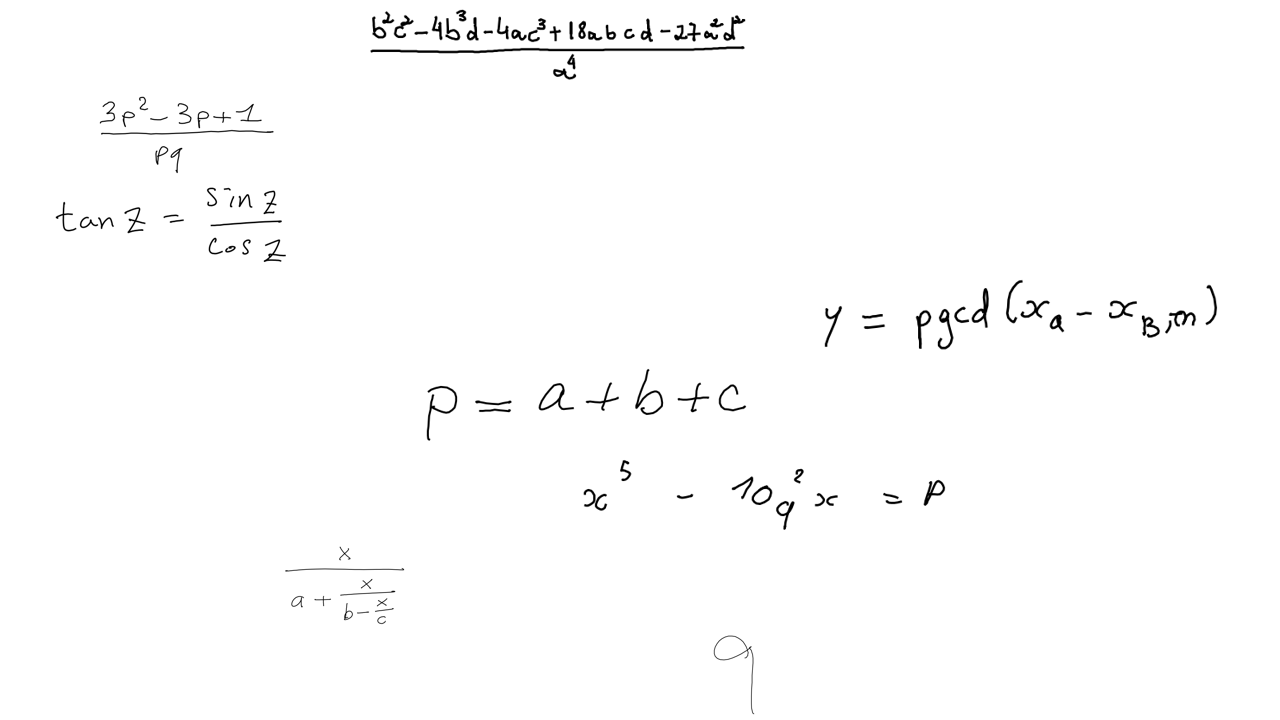 \frac{b^2c^2-4b^3d-4ac^3+18abcd-27a^2d^2}{a^4}
\frac{3p^2-3p+1}{pq}
\tan z = \frac{\sin z}{\cos z}
y = pgcd(x_a - x_B, m)
p = a + b + c
x^5 - 10q^2x = p
\frac{x}{a+\frac{x}{b-\frac{x}{c}}}
q